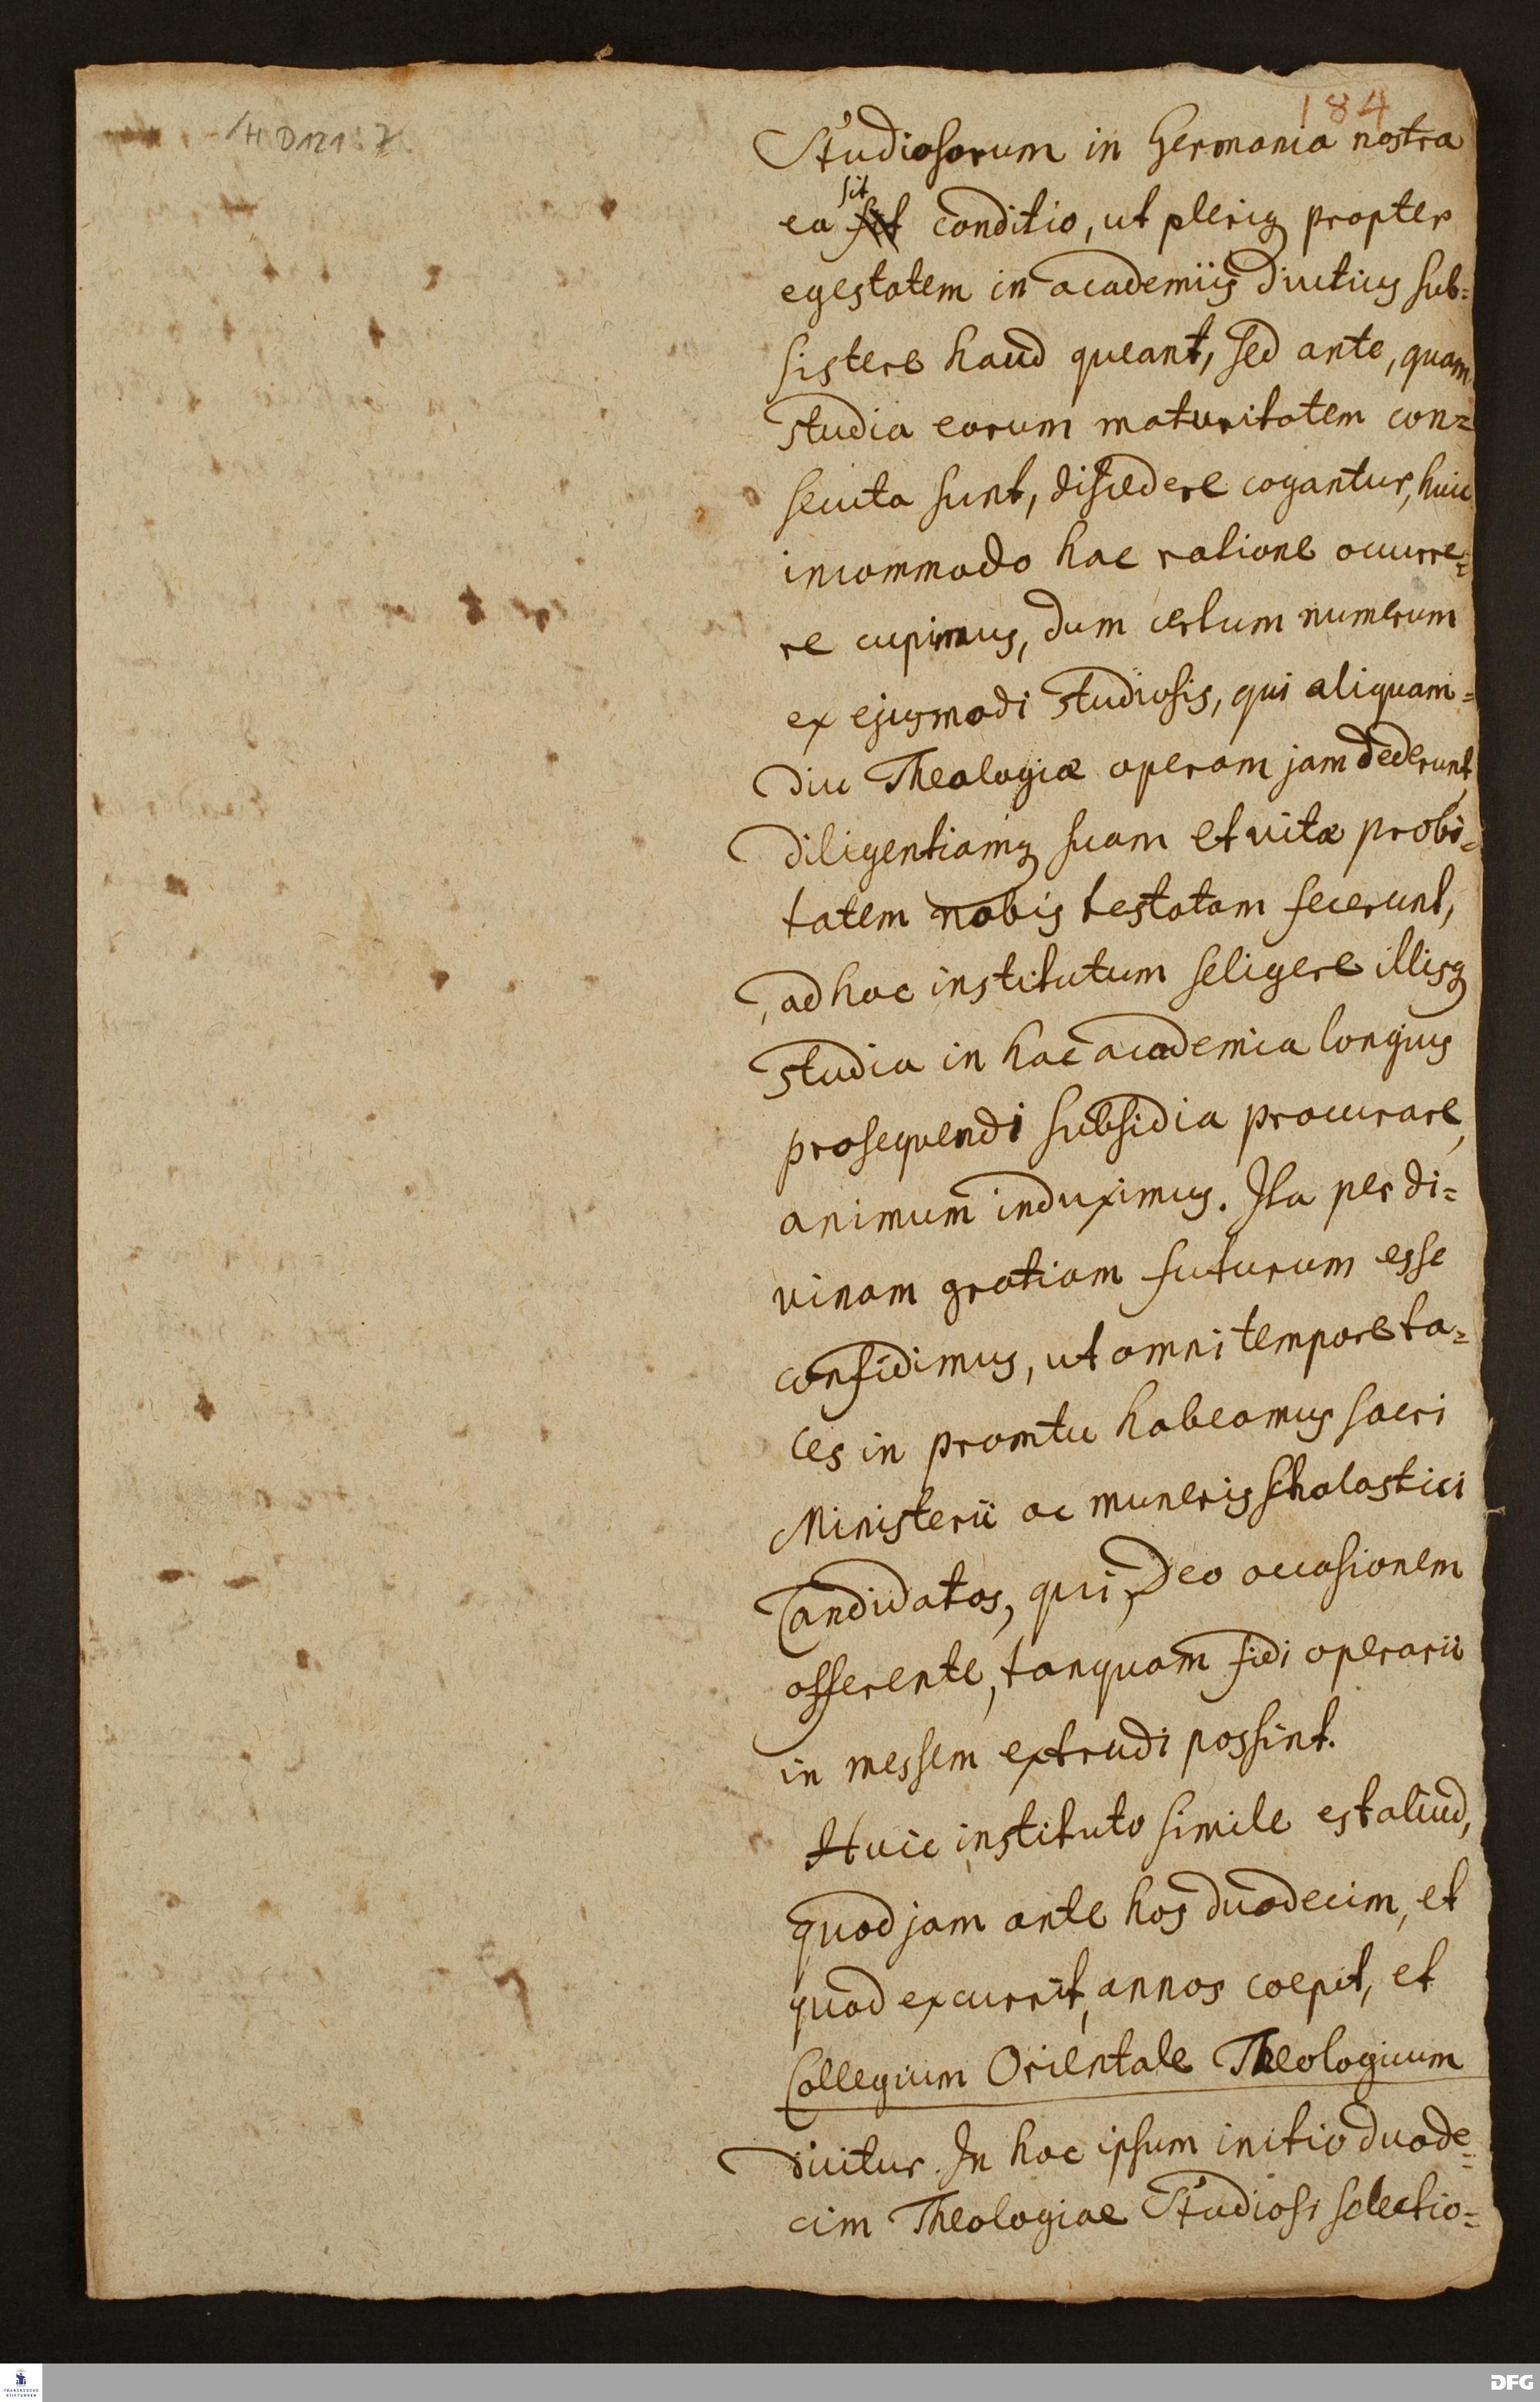 184
H D121: 7
Studiosorum in Germania nostra
sit
ea sit conditio, ut pleriq propter
egestatem in academiis diutius sub=
sistere haud queant, sed ante, quam
studia eorum maturitatem con=
secuta sunt, discedere cogantur, huic
incommodo hac ratione occurre=
re cupimus, dum certum numerum
ex ejusmodi studiosis, qui aliquam=
diu Theologiæ operam jam dederunt,
diligentiamq suam et vitæ probi=
tatem nobis testatam fecerunt,
ad hoc institutum seligere illisq
studia in hac academia longius
prosequendi subsidia procurare,
animum induximus. Ita per di=
vinam gratiam futurum esse
confidimus, ut omni tempore ta=
les in promtu habeamus sacri
Ministerii ac muneris scholastici
Candidatos, qui, Deo occasionem
offerente, tanquam fidi operarii
in messem extrudi possint.
Huic instituto simile est aliud,
quod jam ante hos duodecim, et
quod excurrit, annos coepit, et
Collegium Orientale Theologicum
dicitur. In hoc ipsum initio duode=
cim Theologiae Studiosi selectio=
FRANCKESCHE
STIFTUNGEN
DFG